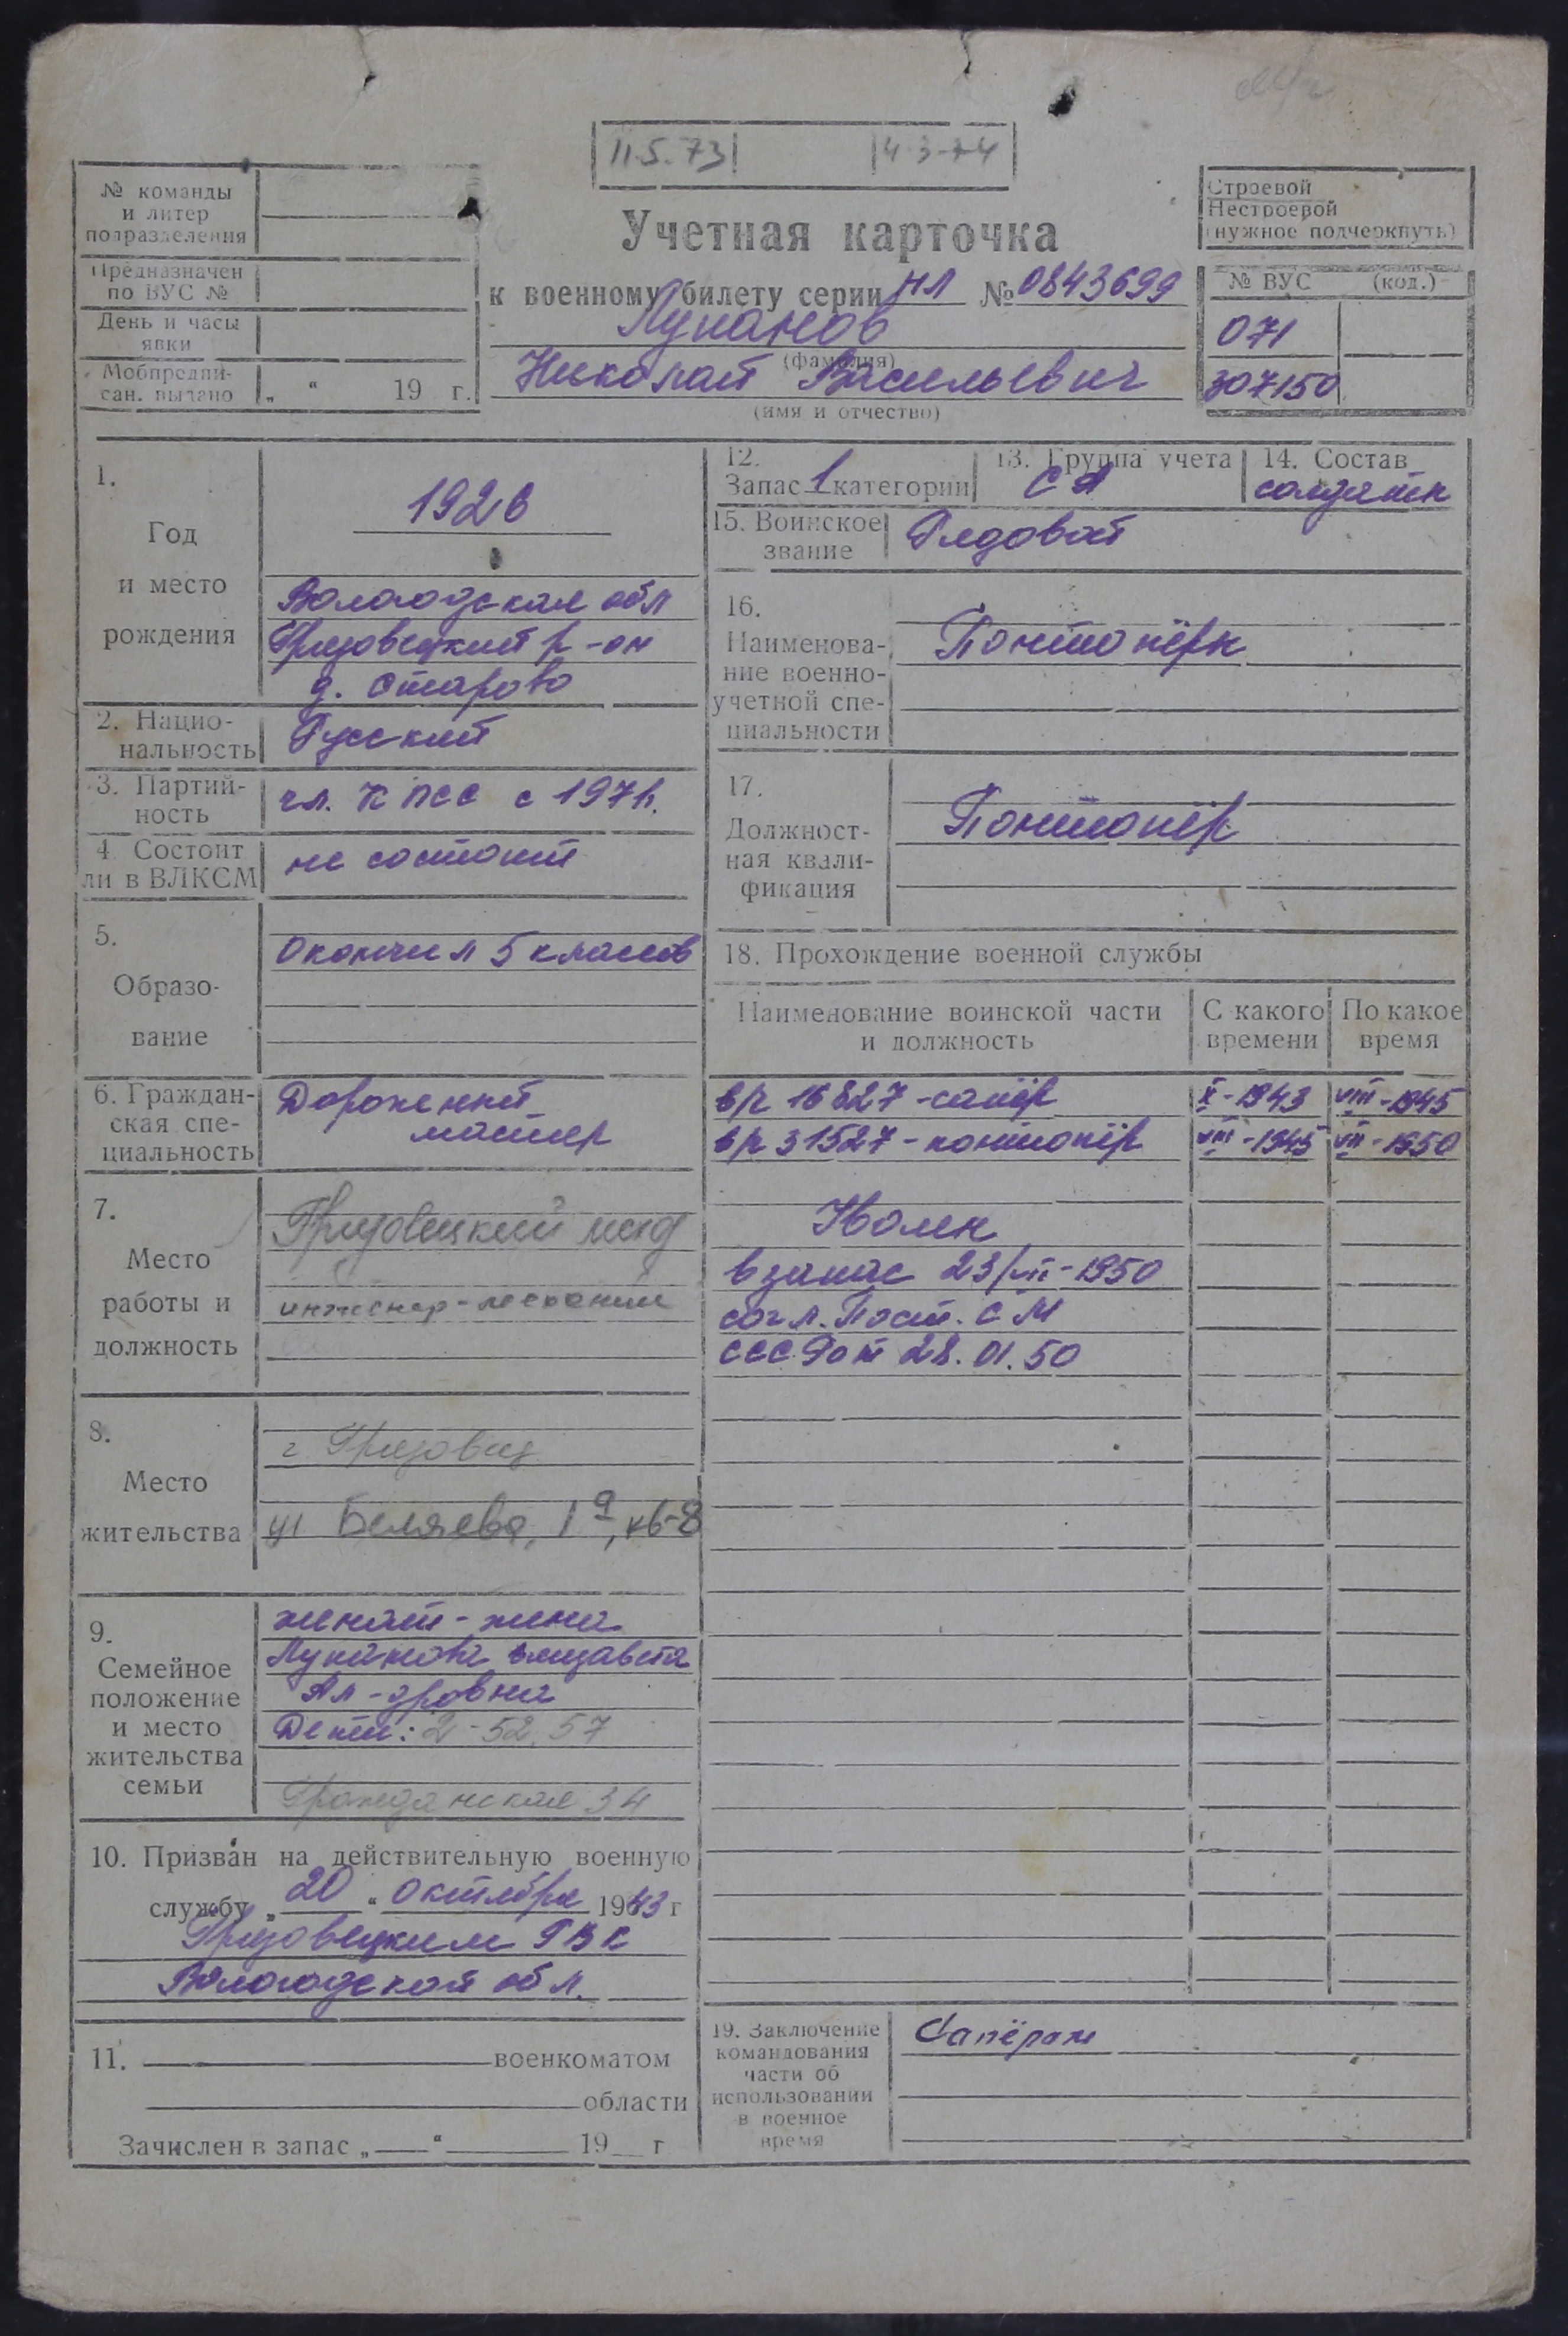 11.5.73 4-3-74
№ команды
и литер
подразделения
Предназначен
по ВУС №
День и часы
явки
Мобпредпи-
сан. выдано „ “ 19 г.
Учетная карточка
к военному билету серии НЛ № 0843699
Лупанов
(фамилия)
Николай Васильевич
(имя и отчество)
Строевой
Нестроевой
(нужное подчеркнуть)
№ ВУС (код.)
071
307150
1.
Год
и место
рождения
1926
Вологодская обл
Грязовецкий р-он
д. Старово
2. Нацио-
нальность
Русский
3. Партий-
ность
чл. КПСС с 1971.
4 Состоит
ли в ВЛКСМ
не состоит
5.
Образо-
вание
Окончил 5 классов
6. Граждан-
ская спе-
циальность
Дорожный
мастер
7.
Место
работы и
должность
Грязовецкий
инженер-
8.
Место
жительства
г Грязовец
ул Беляева, 1а, кв-8
9.
Семейное
положение
и место
жительства
семьи
женат - жена
Лупанова Елизавета
Ал-дровна
Дети: 2 - 52, 57
Гражданская 34
10. Призван на действительную военную
службу „ 20 “ октября 1943 г
Грязовецким РВК
Вологодской обл.
11. военкоматом
области
Зачислен в запас „ “ 19 г
12.
Запас 1 категории
13. Группа учета
СА
14. Состав
солдаты
15. Воинское
звание
Рядовой
16.
Наименова-
ние военно-
учетной спе-
циальности
Понтонёры
17.
Должност-
ная квали-
фикация
Понтонёр
18. Прохождение военной службы
Наименование воинской части
и должность
С какого
времени
По какое
время
в/ч 16827 - сапёр X - 1943 VIII - 1945
в/ч 31527 - понтонёр VIII - 1945 VII - 1950
Уволен
в запас 23/VII - 1950
согл. Пост. СМ
СССР от 28.01.50
19. Заключение
командования
части об
использовании
в военное
время
Сапёром